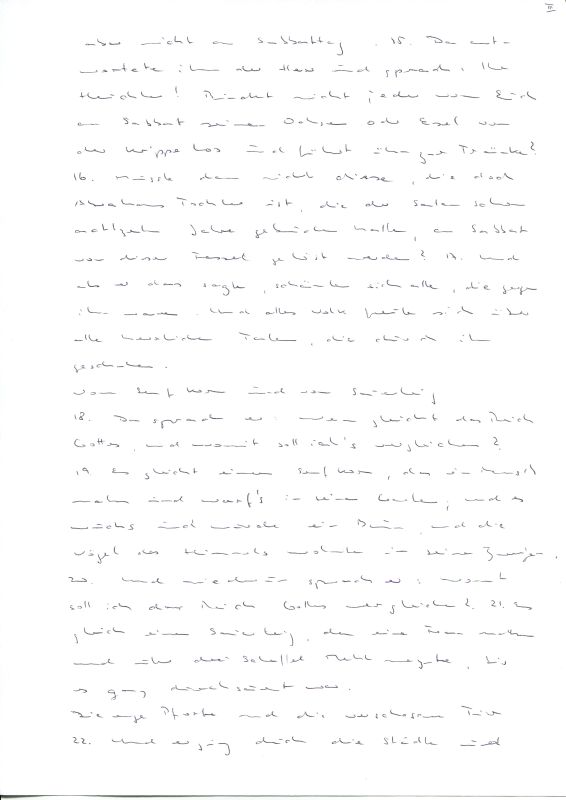 III
aber nicht am Sabbattag. 15. Da ant-
wortete ihm der Herr und sprach: Ihr
Heuchler! Bindet nicht jeder von Euch
am Sabbat seinen Ochsen oder Esel von
der Krippe los und führt ihn zur Tränke?
16. Musste dann nicht diese, die doch
Abrahams Tochter ist, die der Satan schon
achtzehn Jahre gebunden hatte, am Sabbat
von dieser Fessel gelöst werden? 17. Und
als er das sagte, schämten sich alle, die gegen
ihn waren. Und alles Volk freute sich über
alle herrlichen Taten, die durch ihn
geschahen.
Vom Senfkorn und vom Sauerteig
18. Da sprach er: Wem gleicht das Reich
Gottes, und womit soll ich's vergleichen?
19. Es gleicht einem Senfkorn, das ein Mensch
nahm und warf's in seinen Garten; und es
wuchs und wurde ein Baum, und die
Vögel des Himmels wohnten in seinen Zweigen.
20. Und wiederum sprach er: Womit
soll ich das Reich Gottes vergleichen? 21. Es
gleicht einem Sauerteig, den eine Frau nahm
und unter drei Scheffel Mehl mengte, bis
es ganz durchsäuert war.
Die enge Pforte und die verschlossene Tür
22. Und er ging durch die Städte und